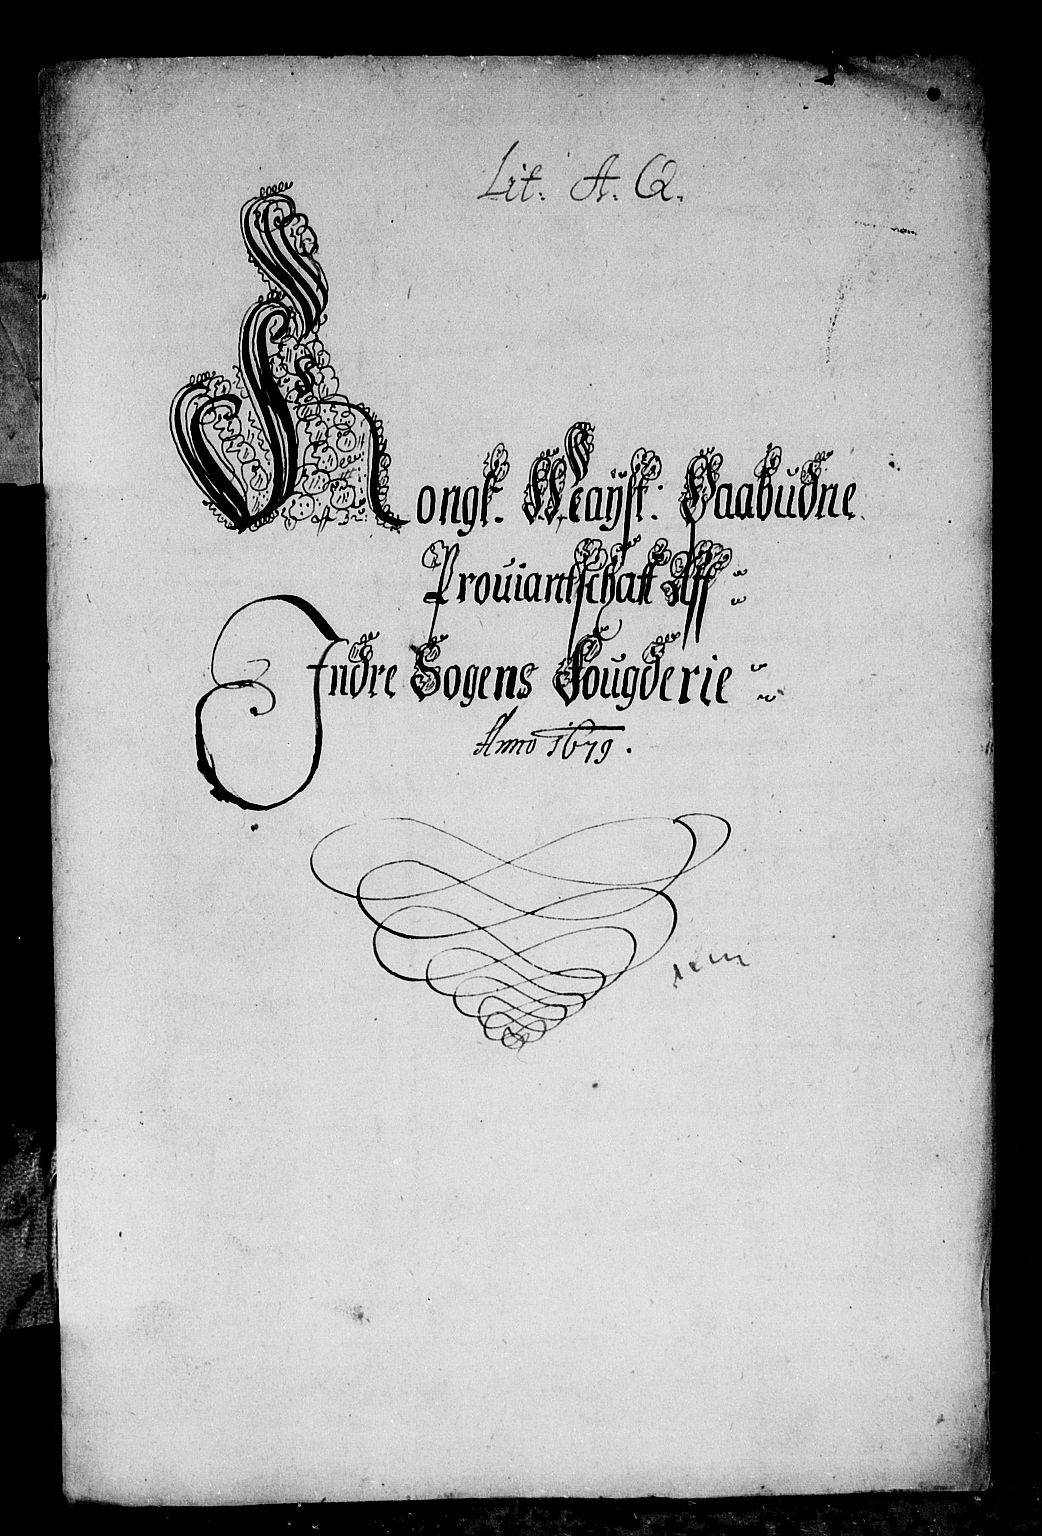 Lit: A. Q.
Kongl. Meaÿst: Paabŭdne
Proŭiantschatt Aff
Indre Sogens Fougderie
Anno 1679.